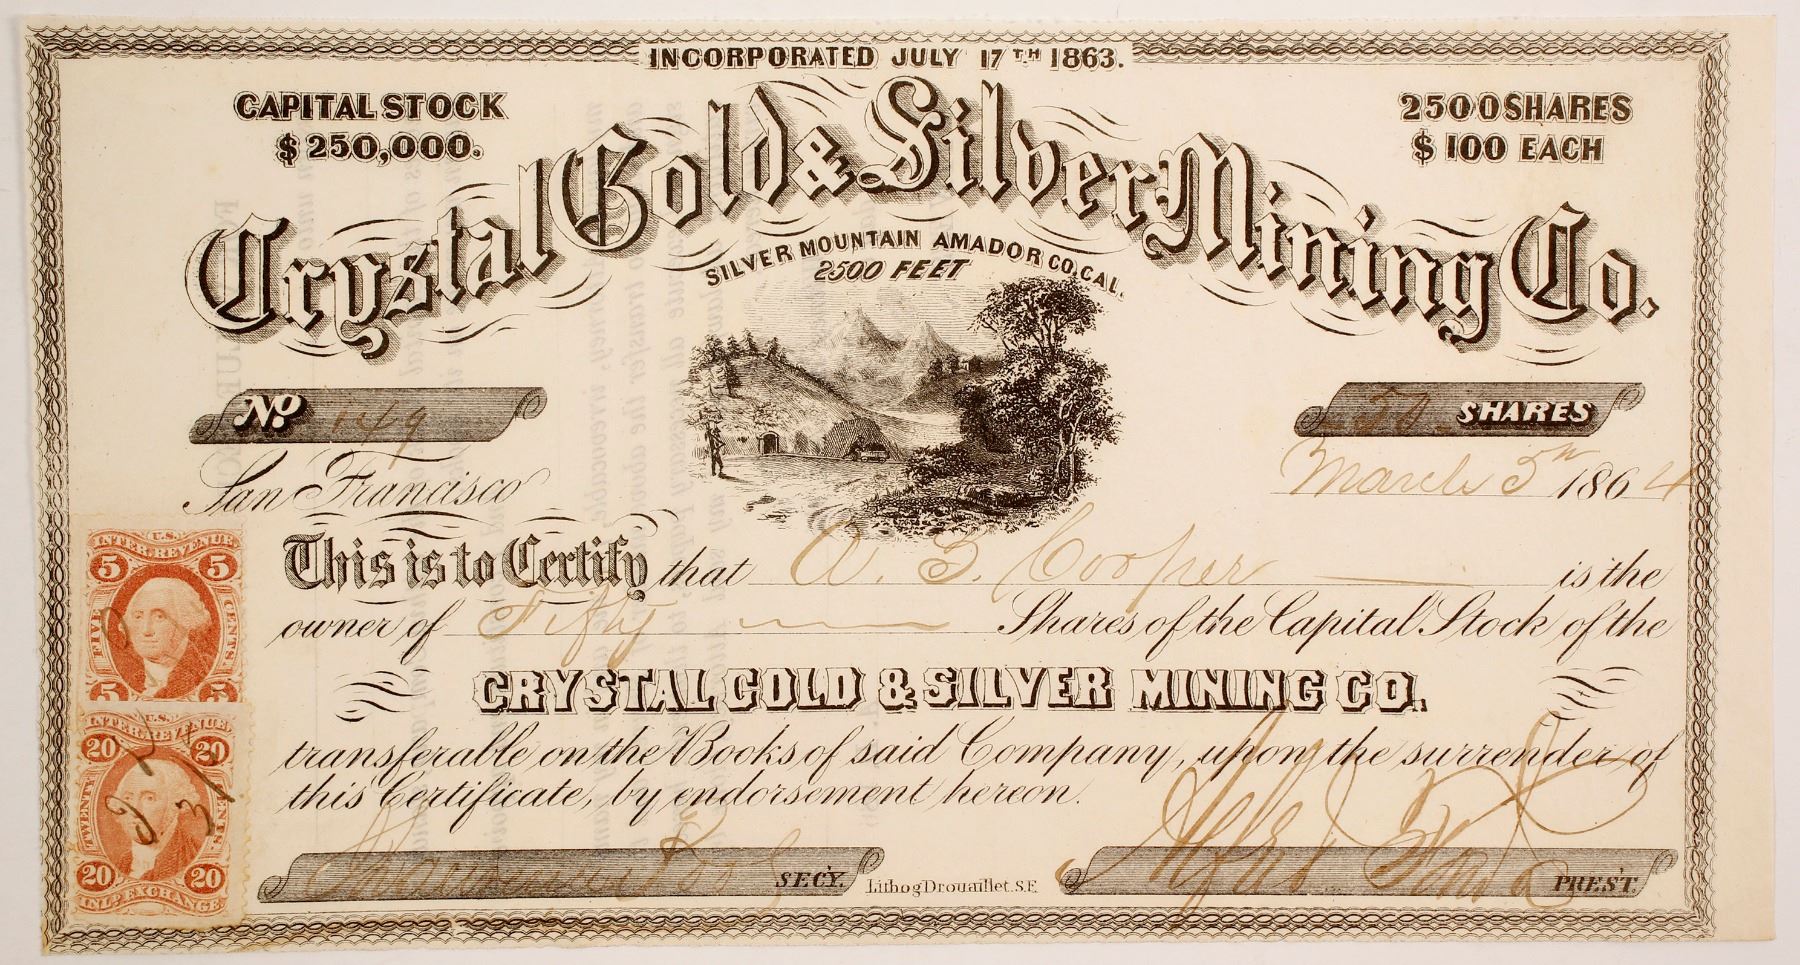 INCORPORATED JULY 17TH 1863.
CAPITAL STOCK
$250,000.
2500 SHARES
$100 EACH
Crystal Gold & Silver Mining Co.
SILVER MOUNTAIN AMADOR CO, CAL.
2500 FEET
No. 149
50 SHARES
San Francisco March 5th 1864
This is to Certify that A. B. Cooper is the
owner of Fifty Shares of the Capital Stock of the
CRYSTAL GOLD & SILVER MINING CO.
transferable on the Books of said Company, upon the surrender of
this Certificate, by endorsement hereon.
SECY.
Lithog Drouaillet. S.F.
PREST.
U.S.
INTER. REVENUE
5 5
FIVE CENTS.
5 5
U.S.
INTER. REVENUE
20 20
TWENTY CENTS.
20 20
INL'D EXCHANGE